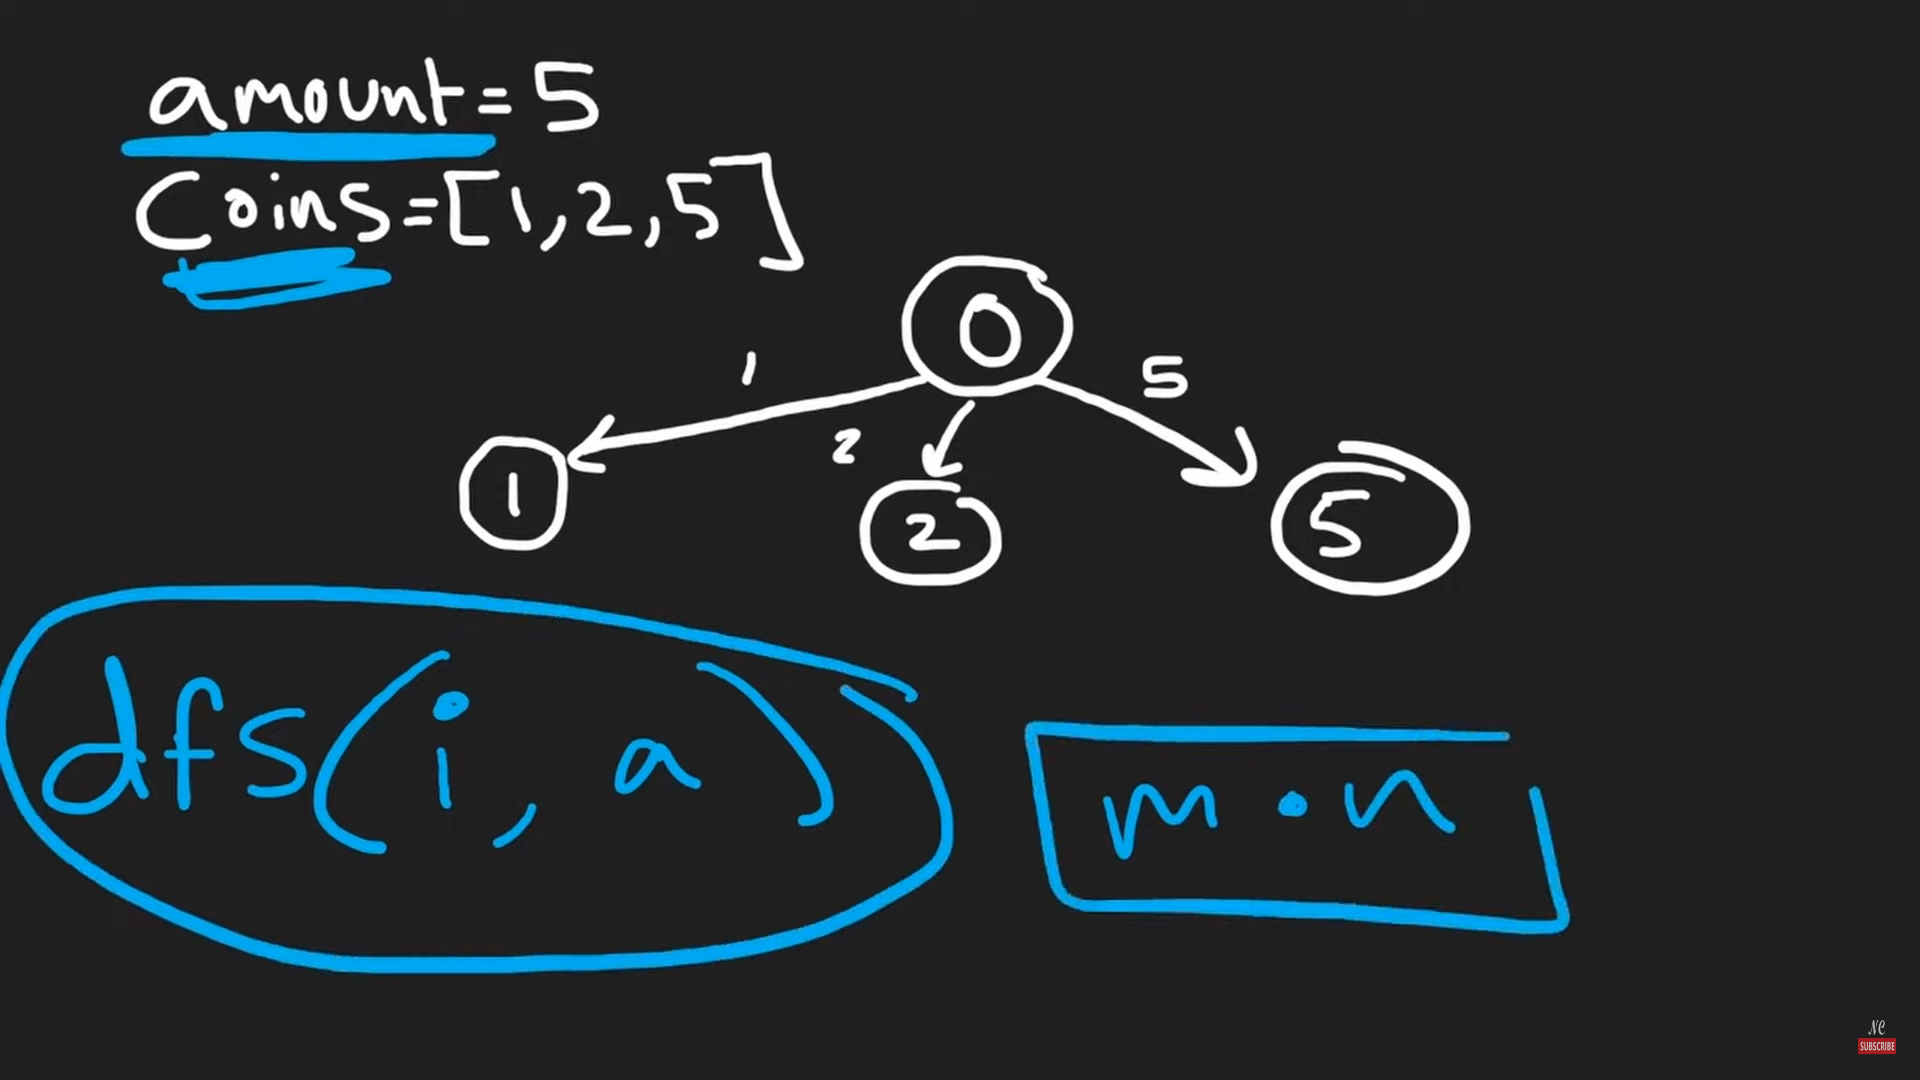 amount=5
Coins=[1,2,5]
0
1
2
5
1
2
5
dfs(i, a)
m·n
NC
SUBSCRIBE